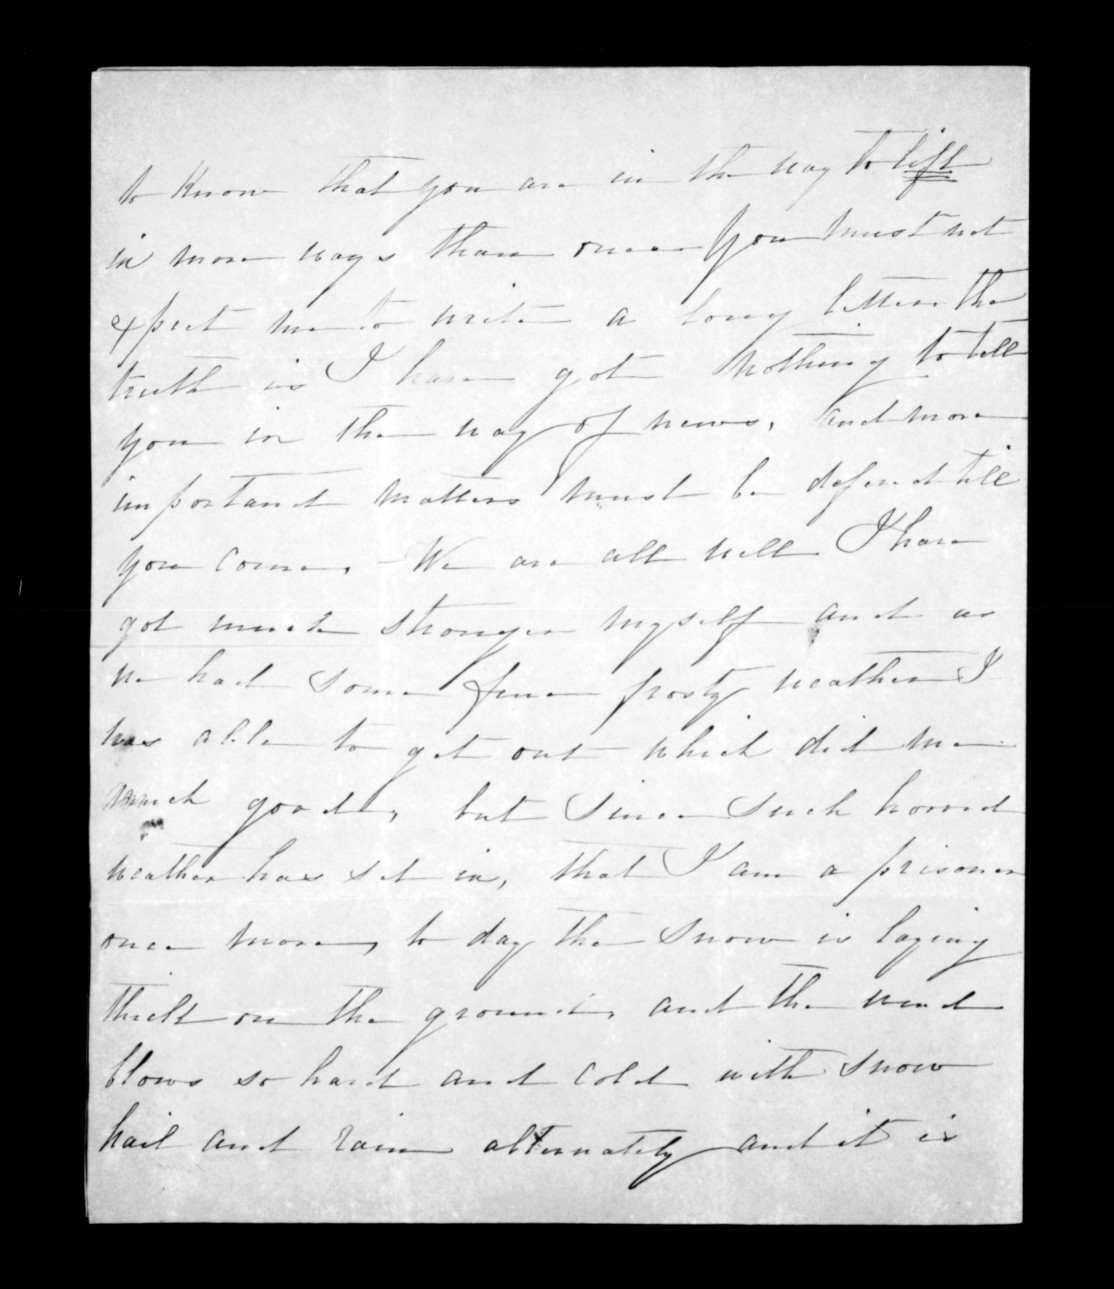 to know that you are in the way to lift
in more ways than one You must not
expect me to write a long letter the
truth is I have got nothing to tell
you in the way of news, and more
important matters must be deferred till
you come, - We are all well I have
got much stronger myself and as
we had some fine frosty weather I
was able to get out which did me
much good, but since such horrid
weather has set in, that I am a prisoner
once more, to day the snow is laying
thick on the ground, and the wind
blows so hard and cold with snow
hail and rain alternately and it is